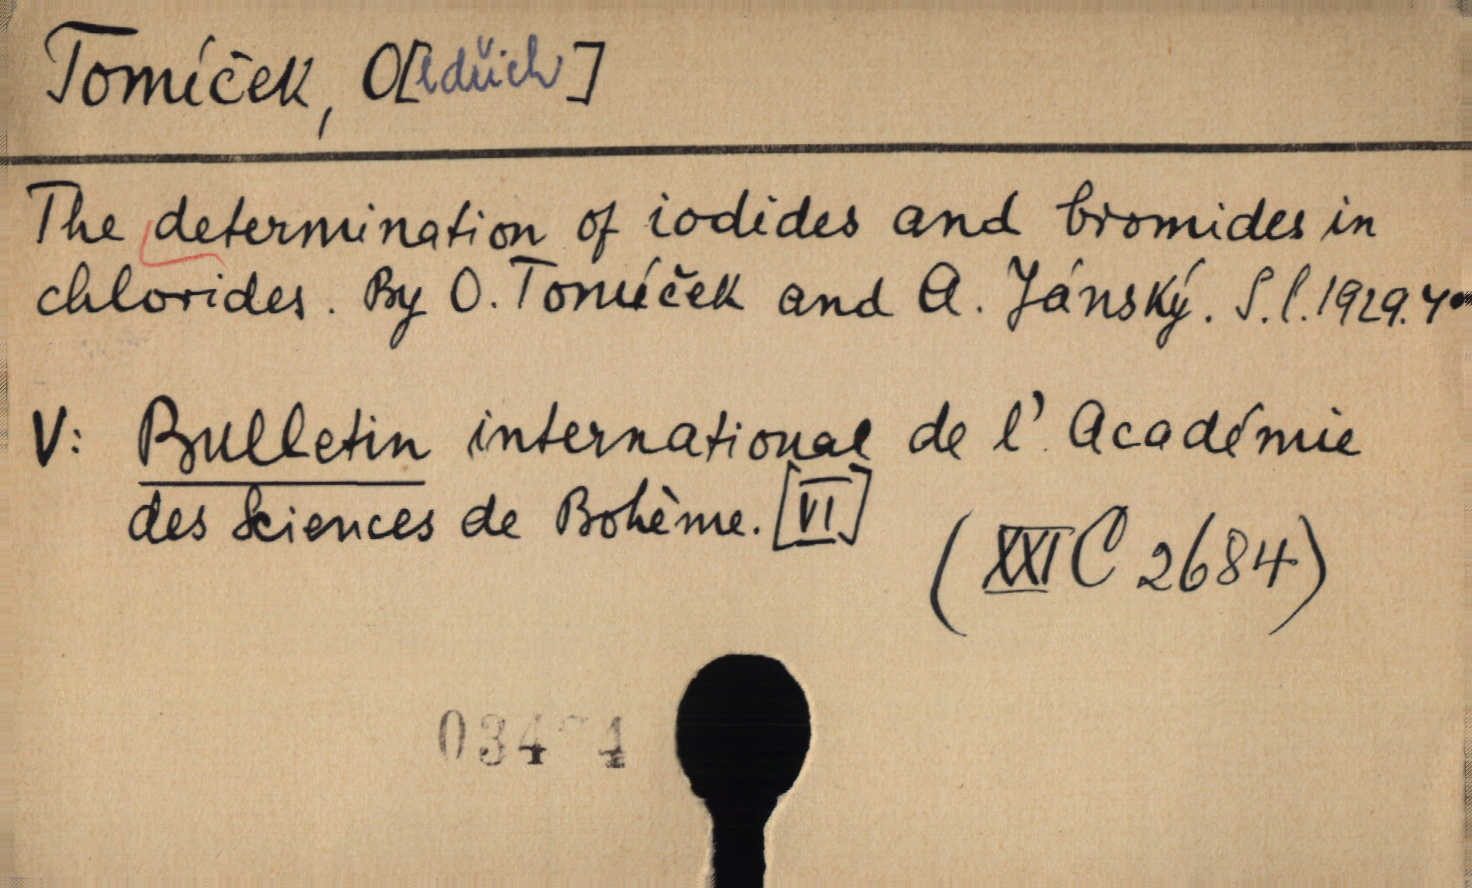 Tomíček, O[ldřich]
The determination of iodides and bromides in
chlorides. By O. Tomíček and A. Jánský. S.l. 1929. 4°
V: Bulletin international de l'Académie
des Sciences de Bohème. [VI]
(XXI C 2684)